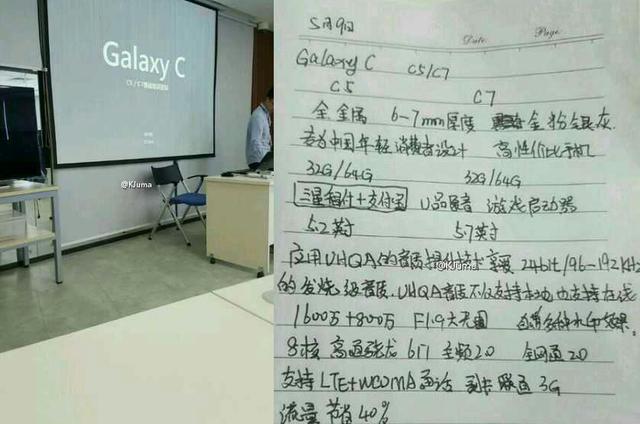 Galaxy C
@KJuma
5月9日
Date Page
Galaxy C C5/C7
C5 C7
全金属 6-7mm厚度 金粉银灰
专为中国年轻消费者设计 高性价比手机
32G/64G 32G/64G
三星智付+支付宝 U品音 游戏启动器
5.2英寸 5.7英寸
应用UHQA的音质提升技术 享受 24bit/96-192KHz
@KJuma
的发烧级音质,UHQA音质不仅支持本地也支持在线
1600万+800万 F1.9大光圈
8核 高通骁龙 617 主频2.0 全网通2.0
支持LTE+WCDMA通话 副卡联通3G
流量节省40%